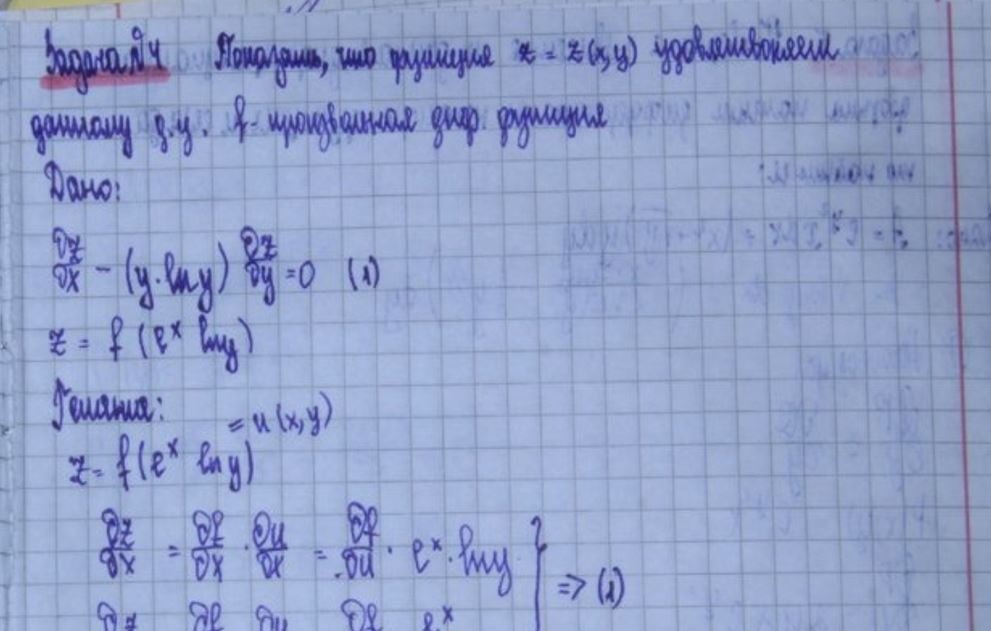 Задача №4 Показать, что функция z = z(x,y) удовлетворяет
данному д.у. f - произвольная диф. функция
Дано:
∂z/∂x - (y·ln y) ∂z/∂y = 0 (1)
z = f (e^x ln y)
Решение:
= u (x,y)
z = f(e^x ln y)
∂z/∂x = ∂f/∂x · ∂u/∂x = ∂f/∂u · e^x · ln y } => (1)